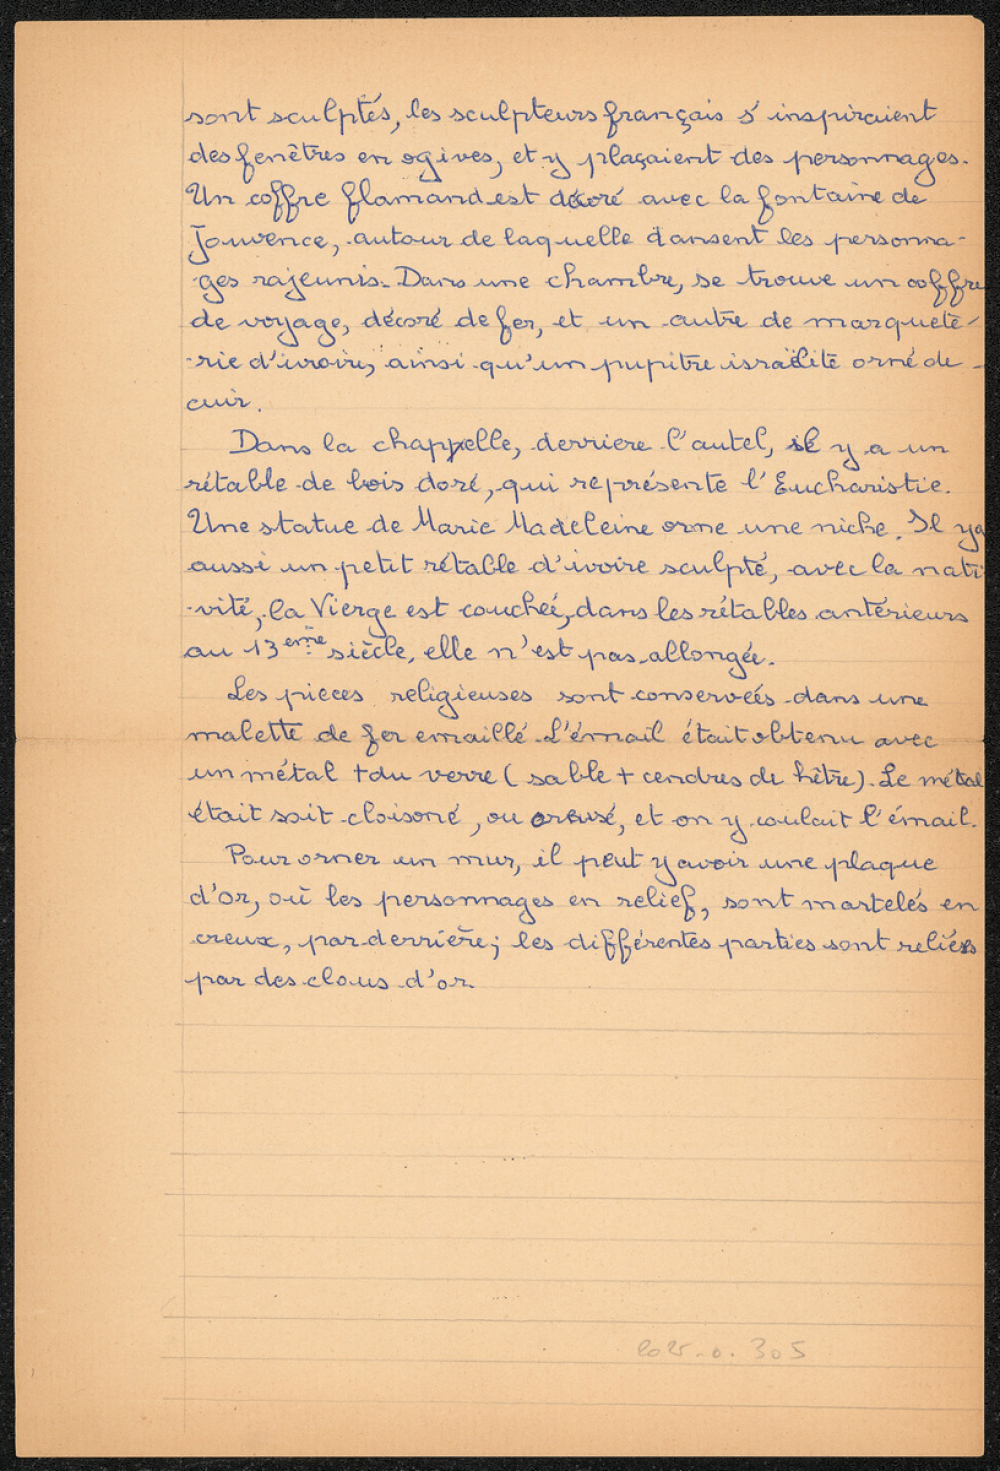 sont sculptés, les sculpteurs français s'inspiraient
des fenêtres en ogives, et y plaçaient des personnages.
Un coffre flamand est décoré avec la fontaine de
Jouvence, autour de laquelle dansent les personna-
ges rajeunis. Dans une chambre, se trouve un coffre
de voyage, décoré de fer, et un autre de marqueté-
-rie d'ivoire, ainsi qu'un pupitre israëlite orné de
cuir.
Dans la chappelle, derriere l'autel, il y a un
rétable de bois doré, qui représente l'Eucharistie.
Une statue de Marie Madeleine orne une niche. Il y a
aussi un petit rétable d'ivoire sculpté, avec la nati-
-vité, la Vierge est couchée, dans les rétables antérieurs
au 13ème siècle, elle n'est pas allongée.
Les pieces religieuses sont conservées dans une
malette de fer emaillé. L'émail était obtenu avec
un métal + du verre (sable + cendres de hêtre). Le métal
était soit cloisoné, ou creusé, et on y coulait l'émail.
Pour orner un mur, il peut y avoir une plaque
d'or, où les personnages en relief, sont martelés en
creux, par derrière; les différentes parties sont reliées
par des clous d'or.
2025.0.305